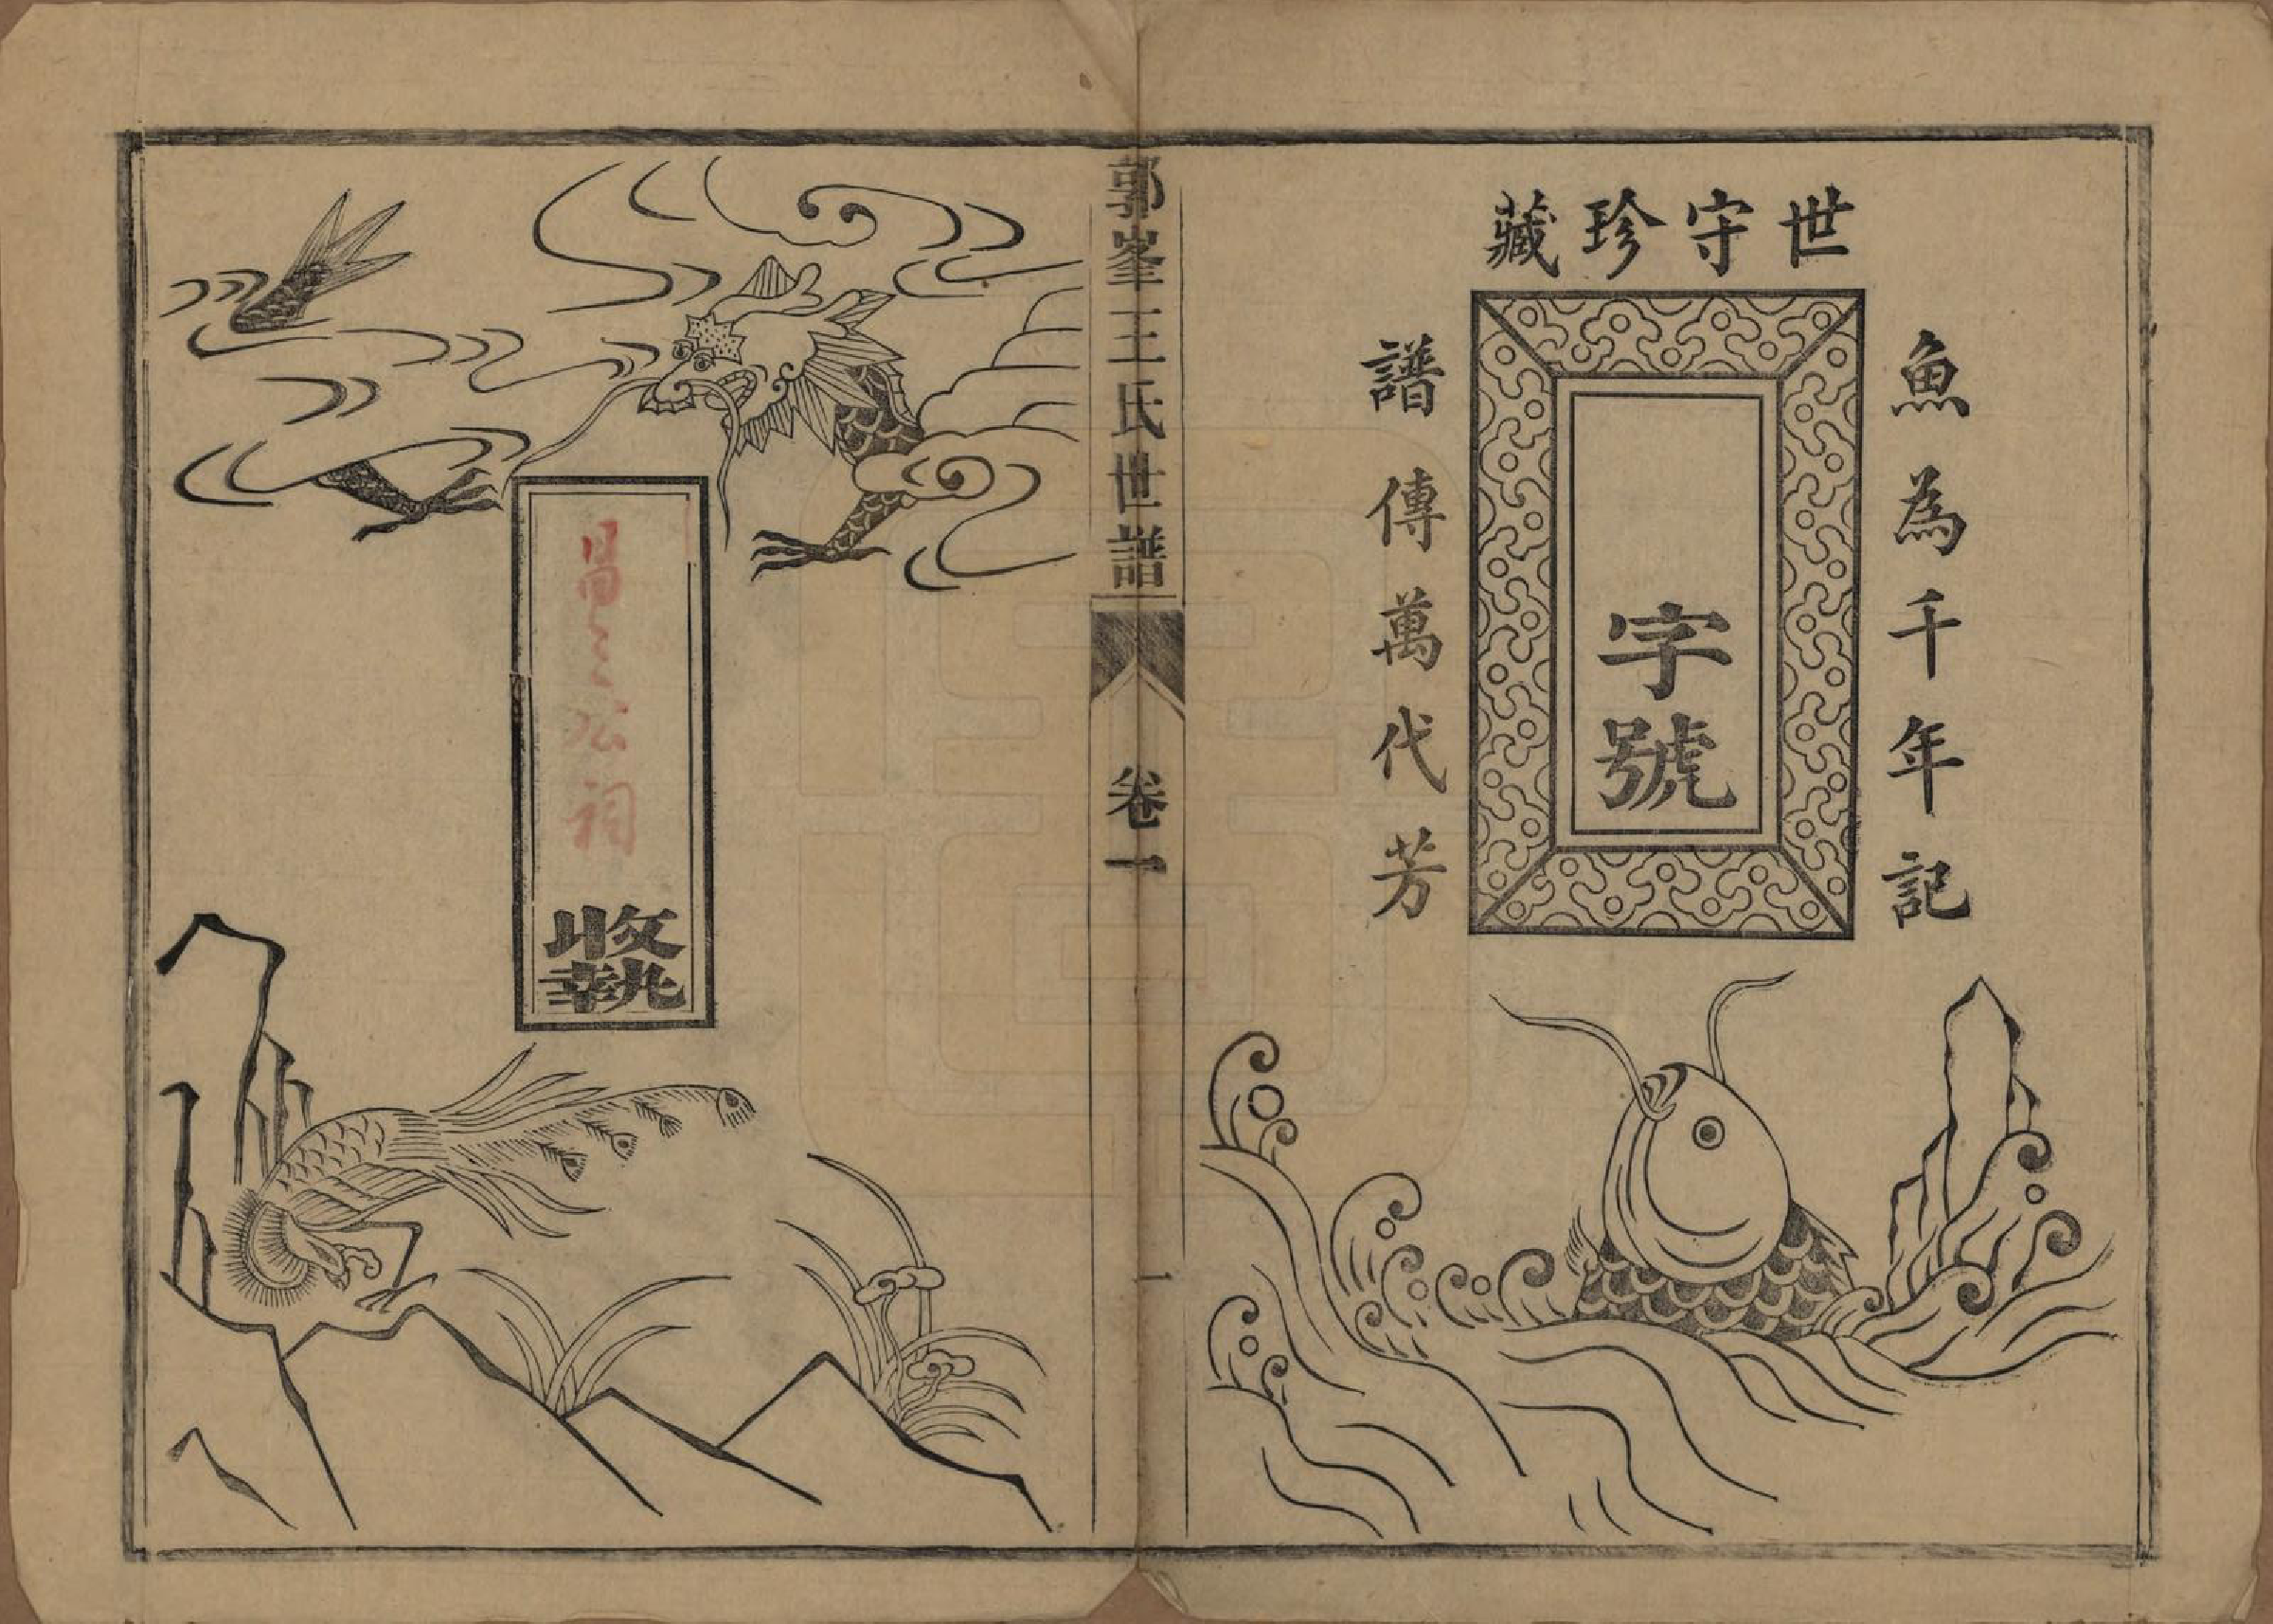 世守珍藏
魚為千年記
字號
譜傳萬代芳
郭峯王氏世譜
卷一
一
公祠
收執